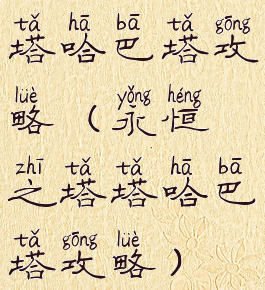 tǎ hā bā tǎ gōng
塔哈巴塔攻
lüè yǒng héng
略（永恒
zhī tǎ tǎ hā bā
之塔塔哈巴
tǎ gōng lüè
塔攻略）